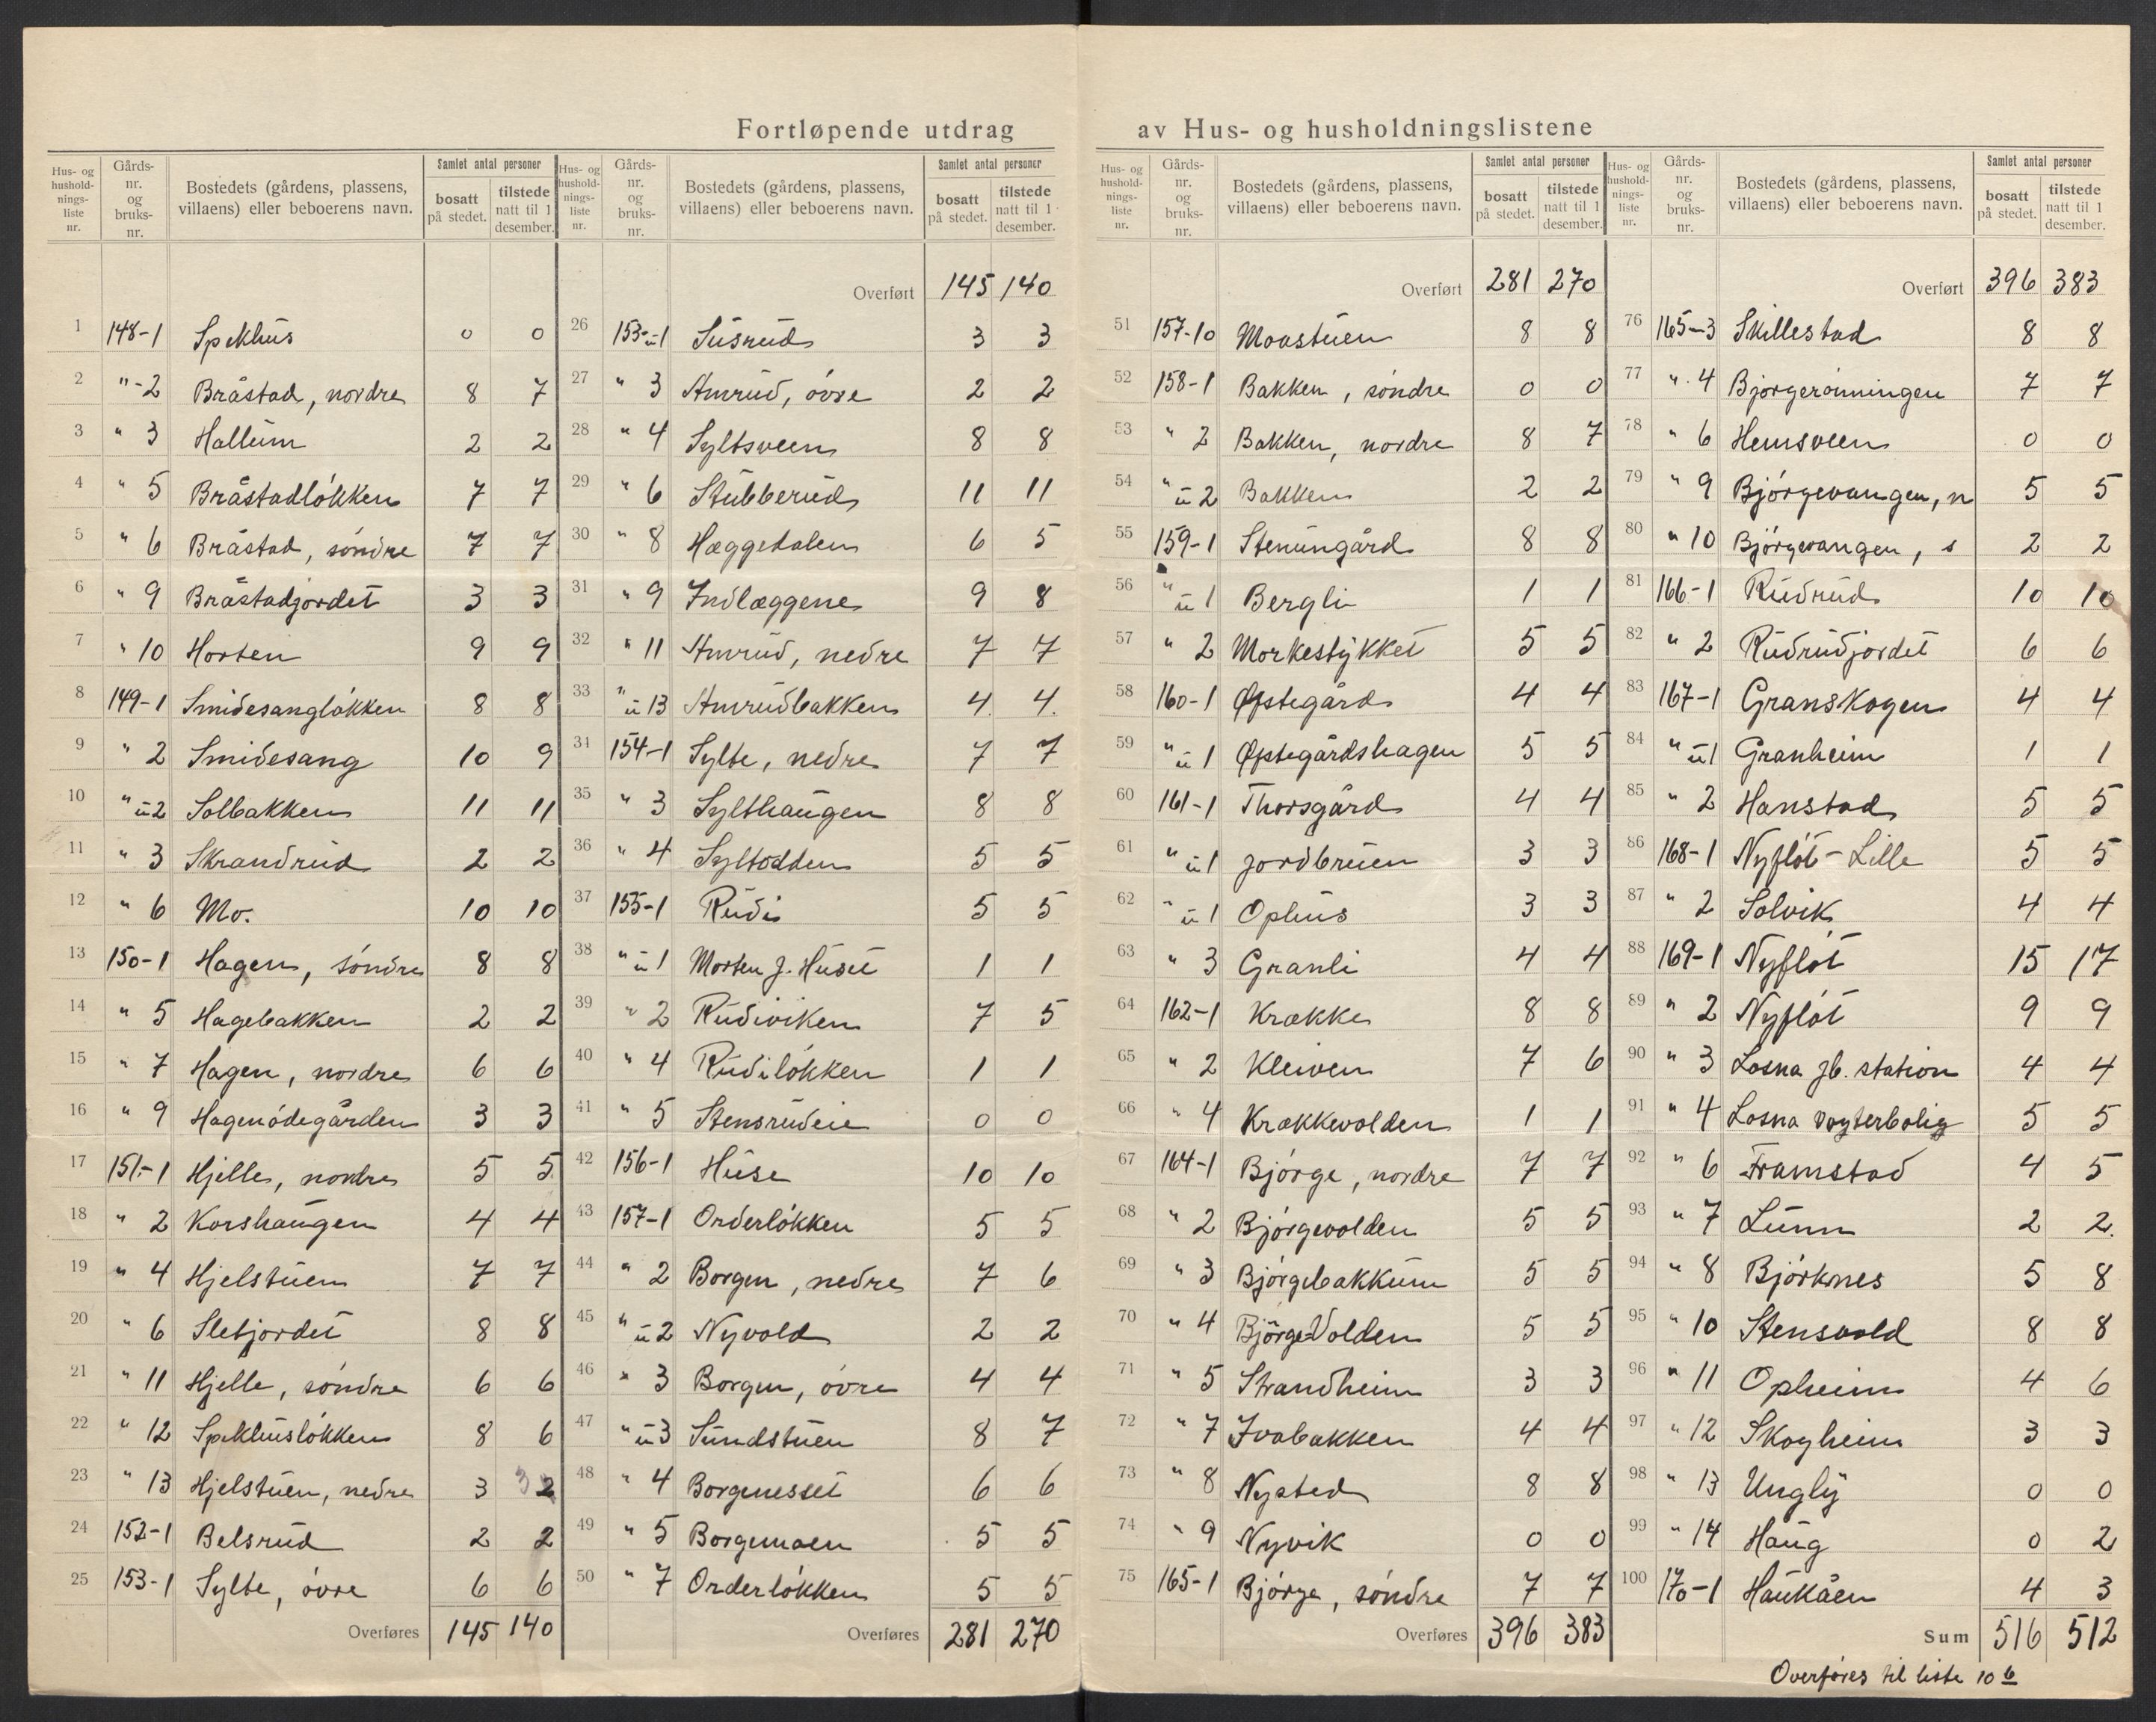 Fortløpende utdrag av Hus- og husholdningslistene
Hus- og hushold-nings-liste nr. Gårds-nr. og bruks-nr. Bostedets (gårdens, plassens, villaens) eller beboerens navn. Samlet antal personer bosatt på stedet. tilstede natt til 1 desember.
1 148-1 Spekhus 0 0
2 "-2 Bråstad, nordre 8 7
3 " 3 Hallum 2 2
4 " 5 Bråstadløkken 7 7
5 " 6 Bråstad, søndre 7 7
6 " 9 Bråstadjordet 3 3
7 " 10 Horten 9 9
8 149-1 Smidesangløkken 8 8
9 " 2 Smidesang 10 9
10 " u2 Solbakken 11 11
11 " 3 Skrandrud 2 2
12 " 6 Mo. 10 10
13 150-1 Hagen, søndre 8 8
14 " 5 Hagebakken 2 2
15 " 7 Hagen, nordre 6 6
16 " 9 Hagenødegården 3 3
17 151-1 Hjelle, nordre 5 5
18 " 2 Korshaugen 4 4
19 " 4 Hjelstuen 7 7
20 " 6 Sletjordet 8 8
21 " 11 Hjelle, søndre 6 6
22 " 12 Spekhusløkken 8 6
23 " 13 Hjelstuen, nedre 3 2
24 152-1 Belsrud 2 2
25 153-1 Sylte, øvre 6 6
Overføres 145 140
Hus- og hushold-nings-liste nr. Gårds-nr. og bruks-nr. Bostedets (gårdens, plassens, villaens) eller beboerens navn. Samlet antal personer bosatt på stedet. tilstede natt til 1 desember.
Overført 145 140
26 153-u1 Susrud 3 3
27 " 3 Amrud, øvre 2 2
28 " 4 Syltsveen 8 8
29 " 6 Stubberud 11 11
30 " 8 Hæggedalen 6 5
31 " 9 Indlæggene 9 8
32 " 11 Amrud, nedre 7 7
33 " u13 Amrudbakken 4. 4.
34 154-1 Sylte, nedre 7 7
35 " 3 Sylthaugen 8 8
36 " 4 Syltodden 5 5
37 155-1 Rudi 5 5
38 " u1 Morten J. Huset 1 1
39 " 2 Rudiviken 7 5
40 " 4 Rudiløkken 1 1
41 " 5 Stensrudeie 0 0
42 156-1 Huse 10 10
43 157-1 Orderløkken 5 5
44 " 2 Borgen, nedre 7 6
45 " u2 Nyvold 2 2
46 " 3 Borgen, øvre 4 4
47 " u3 Sundstuen 8 7
48 " 4 Borgenesset 6 6
49 " 5 Borgemoen 5 5
50 " 7 Orderløkken 5 5
Overføres 281 270
Hus- og hushold-nings-liste nr. Gårds-nr. og bruks-nr. Bostedets (gårdens, plassens, villaens) eller beboerens navn. Samlet antal personer bosatt på stedet. tilstede natt til 1 desember.
Overført 281 270
51 157-10 Moastuen 8 8
52 158-1 Bakken, søndre 0 0
53 " 2 Bakken, nordre 8 7
54 " u2 Bakken 2 2
55 159-1 Stenungård 8 8
56 " u1 Bergli 1 1
57 " 2 Morkestykket 5 5
58 160-1 Øpstegård 4 4
59 " u1 Øpstegårdshagen 5 5
60 161-1 Thorsgård 4 4
61 " u1 Jordbruen 3 3
62 " u1 Ophus 3 3
63 " 3 Granli 4 4
64 162-1 Krække 8 8
65 " 2 Kleiven 7 6
66 " 4 Krækkevolden 1 1
67 164-1 Bjørge, nordre 7 7
68 " 2 Bjørgevolden 5 5
69 " 3 Bjørgebakkum 5 5
70 " 4 Bjørge-Volden 5 5
71 " 5 Strandheim 3 3
72 " 7 Ivabakken 4 4
73 " 8 Nysted 8 8
74 " 9 Nyvik 0 0
75 165-1 Bjørge, søndre 7 7
Overføres 396 383
Hus- og hushold-nings-liste nr. Gårds-nr. og bruks-nr. Bostedets (gårdens, plassens, villaens) eller beboerens navn. Samlet antal personer bosatt på stedet. tilstede natt til 1 desember.
Overført 396 383
76 165-3 Skillestad 8 8
77 " 4 Bjørgerønningen 7 7
78 " 6 Hemsveen 0 0
79 " 9 Bjørgevangen, n 5 5
80 " 10 Bjørgevangen, s 2 2
81 166-1 Rudrud 10 10
82 " 2 Rudrudjordet 6 6
83 167-1 Granskogen 4 4
84 " u1 Granheim 1 1
85 " 2 Hanstad 5 5
86 168-1 Nyfløt-Lille 5 5
87 " 2 Solvik 4 4
88 169-1 Nyfløt 15 17
89 " 2 Nyfløt 9 9
90 " 3 Losna jb. station 4 4
91 " 4 Losna vogterbolig 5 5
92 " 6 Framstad 4 5
93 " 7 Lunn 2 2.
94 " 8 Bjørknes 5 8
95 " 10 Stensvold 8 8
96 " 11 Opheim 4 6
97 " 12 Skogheim 3 3
98 " 13 Ungly 0 0
99 " 14 Haug 0 2
100 170-1 Haukåen 4 3
Sum 516 512
Overføres til liste 10 b